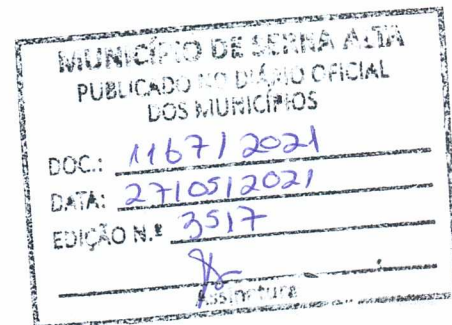 MUNICÍPIO DE SERRA ALTA
PUBLICADO NO DIÁRIO OFICIAL
DOS MUNICÍPIOS
DOC.: 1167/2021
DATA: 27/05/2021
EDIÇÃO N.º 3517
Assinatura